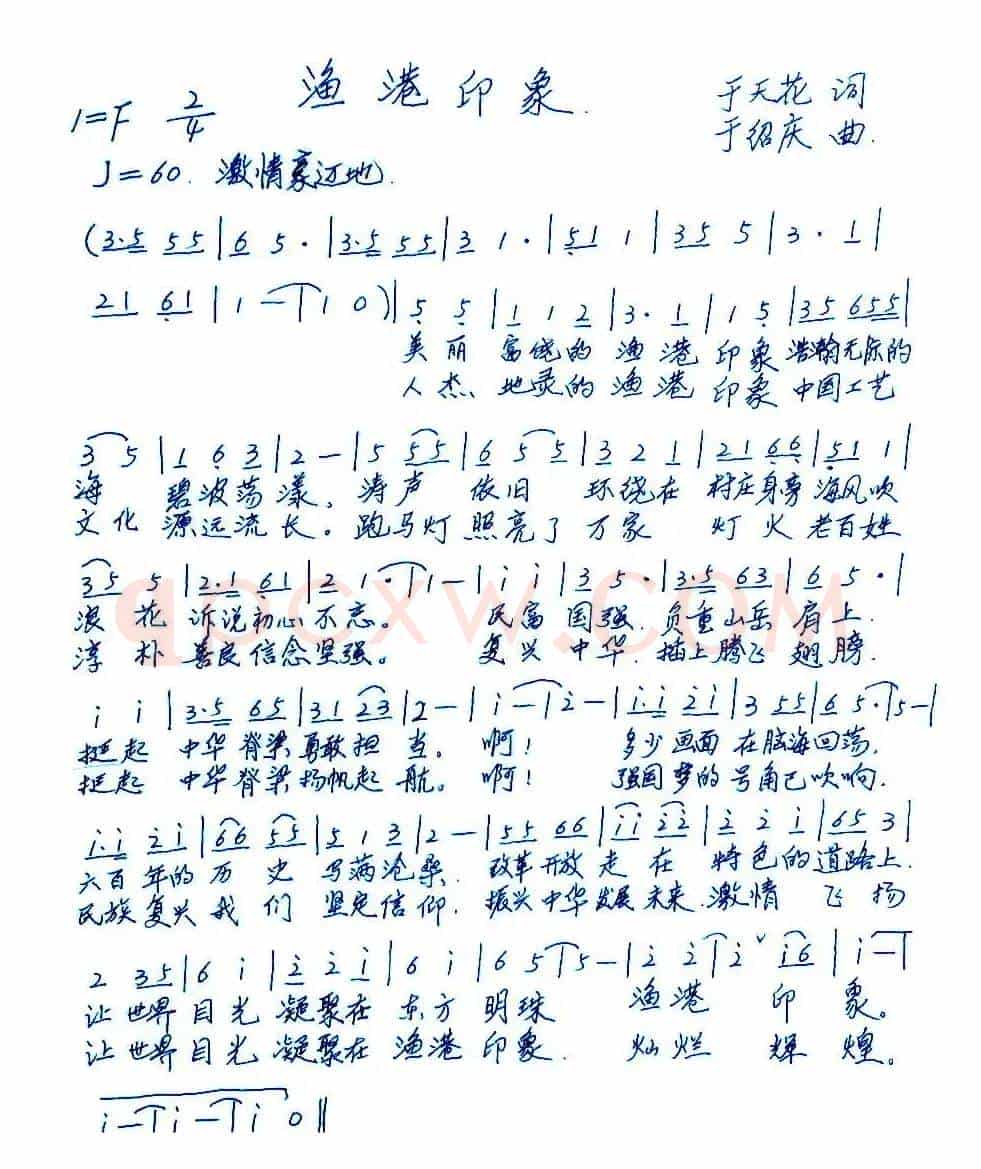 渔港印象.
1=F 2/4
于天花 词
于绍庆 曲.
J=60. 激情豪迈地.
(3·5 55|6 5·|3·5 55|3 1·|51 1|35 5|3· 1|
21 61|1 —|1 0)|5 5|1 1 2|3· 1|1 5|35 655|
美丽 富饶的 渔港 印象 浩瀚无际的
人杰 地灵的 渔港 印象 中国工艺
3 5|1 6 3|2 —|5 55|6 5 5|3 2 1|21 66|51 1|
海 碧波荡漾, 涛声 依旧 环绕在 村庄身旁 海风吹
文化 源远流长。跑马灯 照亮了 万家 灯火 老百姓
35 5|2·1 61|2 1·|1 —|i i|3 5·|3·5 63|6 5·|
浪花 诉说初心不忘。 民富 国强. 负重山岳 肩上.
淳朴 善良信念坚强。 复兴 中华. 插上腾飞 翅膀.
i i|3·5 65|31 23|2 —|i —|2 —|i·i 2i|3 55|6 5·|5 —|
挺起 中华脊梁勇敢担当。 啊! 多少画面 在脑海回荡.
挺起 中华脊梁扬帆起航。 啊! 强国梦的 号角已吹响.
i·i 2i|66 55|5 1 3|2 —|55 66|ii 22|2 2 i|65 3|
六百年的历史 写满沧桑. 改革开放 走在 特色的道路上.
民族复兴我们 坚定信仰. 振兴中华发展未来.激情 飞扬
2 35|6 i|2 2 i|6 i|6 5|5 —|2 2|2 ˅ i6|i —|
让世界目光 凝聚在 东方 明珠 渔港 印象。
让世界目光 凝聚在 渔港 印象. 灿烂 辉煌。
i —|i —|i 0‖
qpcxw.COM